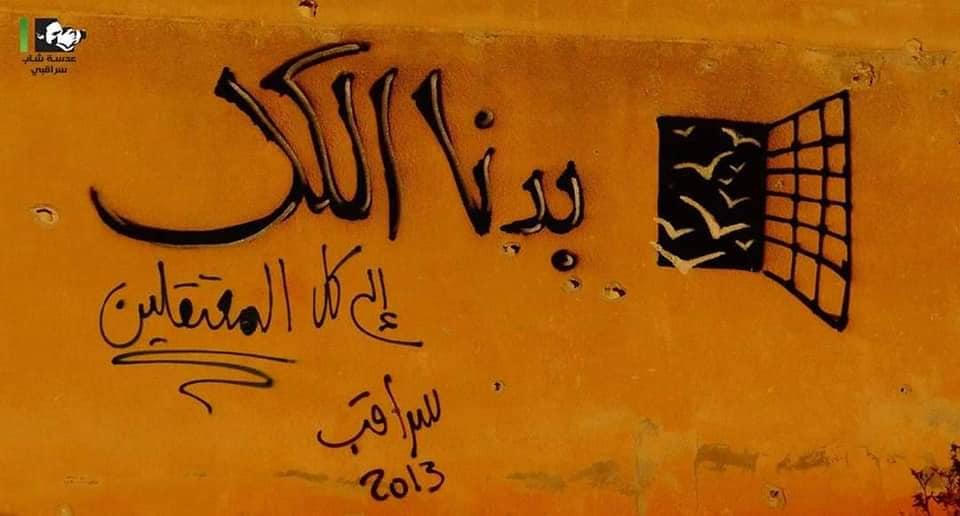 عدسة شاب
سراقبي
بدنا الكل
إلى كل المعتقلين
سراقب
2013